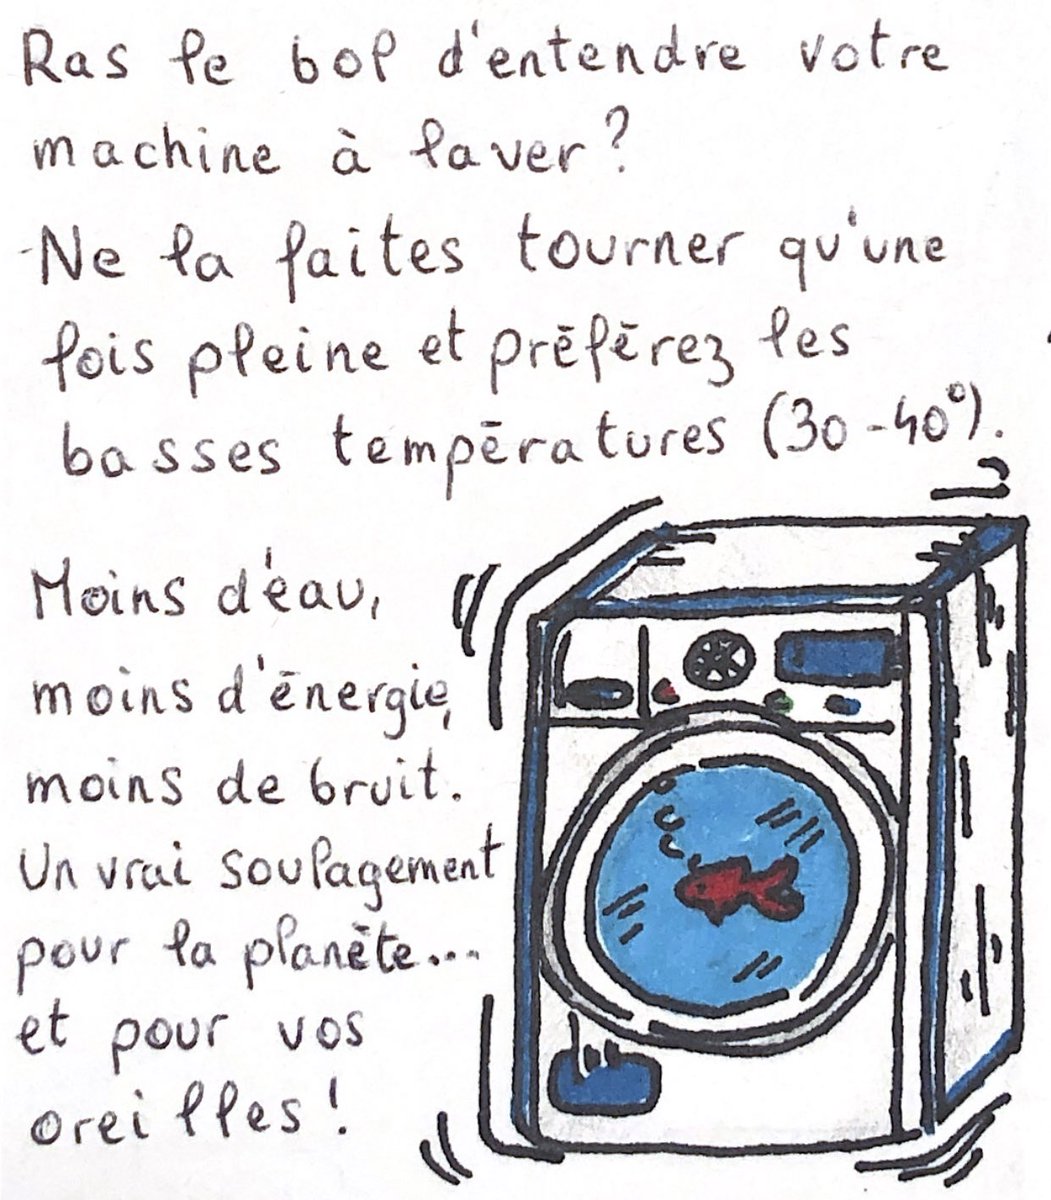 Ras le bol d'entendre votre
machine à laver?
Ne la faites tourner qu'une
fois pleine et préférez les
basses températures (30-40°).
Moins d'éau,
moins d'énergie,
moins de bruit.
Un vrai soulagement
pour la planète...
et pour vos
oreilles!